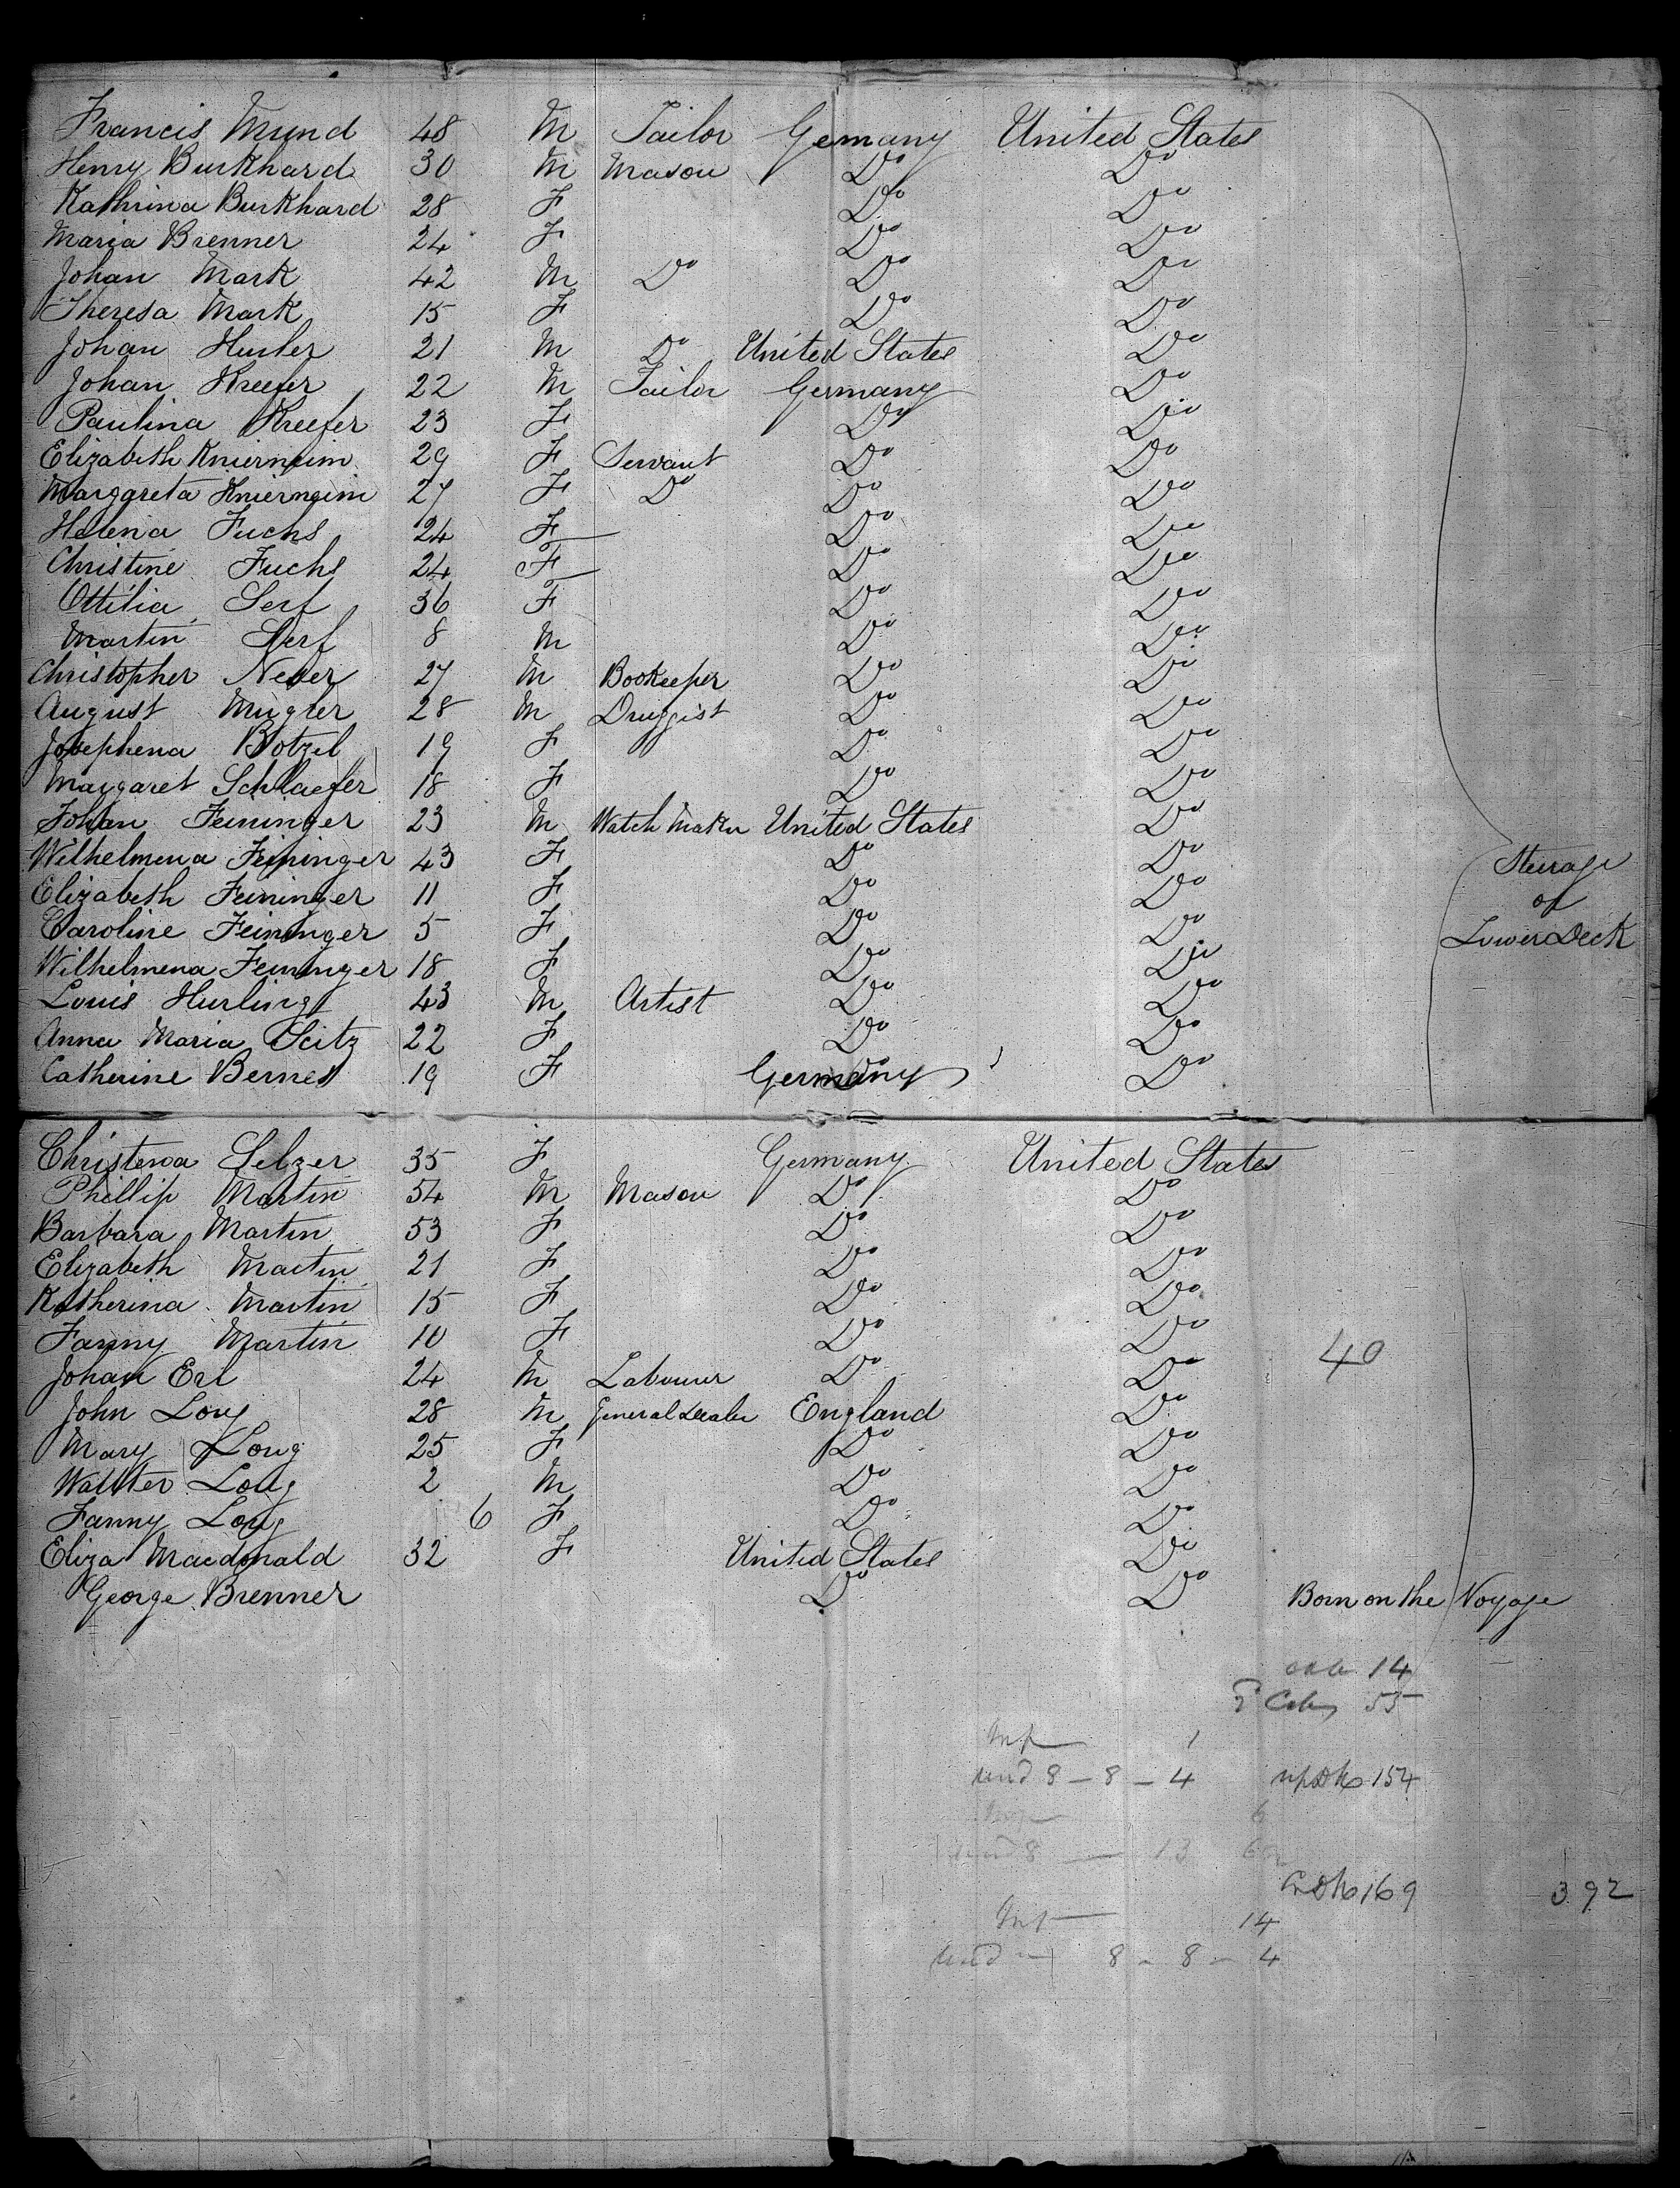 Francis Mund 48 M Tailor Gemany United States
Henry Burkhard 30 M Mason Do Do
Kathrina Burkhard 28 F Do Do
Maria Brenner 24 F Do Do
Johan Mark 42 M Do Do Do
Theresa Mark 15 F Do Do
Johan Husler 21 M Do United States Do
Johan Kreefer 22 M Tailor Germany Do
Paulina Kreefer 23 F Do Do
Elizabeth Knierneim 29 F Servant Do Do
Margareta Knierneim 27 F Do Do Do
Helena Fuchs 24 F Do Do
Christine Fuchs 24 F Do Do
Ottilia Serf 36 F Do Do
Martin Serf 8 M Do Do
Christopher Neder 27 M Bookeeper Do Do
August Mugler 28 M Druggist Do Do
Josephena Botzel 19 F Do Do
Maygaret Schlaefer 18 F Do Do
Johan Feininger 23 M Watch Maker United States Do
Wilhelmena Feininger 43 F Do Do
Elizabeth Feininger 11 F Do Do
Steerage
of
Caroline Feininger 5 F Do Do
Lower Deck
Wilhelmena Feininger 18 F Do Do
Louis Hurling 43 M Artist Do Do
Anna Maria Seitz 22 F Do Do
Catherine Bernet 19 F Germany Do
Christena Selzer 35 F Germany United States
Phillip Martin 54 M Mason Do Do
Barbara Martin 53 F Do Do
Elizabeth Martin 21 F Do Do
Katherina Martin 15 F Do Do
Fanny Martin 10 F Do Do
40
Johan Erl 24 M Labourer Do Do
John Long 28 M General Dealer England Do
Mary Long 25 F Do Do
Wallter Long 2 M Do Do
Fanny Long 6 F Do Do
Eliza Macdonald 32 F United States Do
George Brenner Do Do Born on the Voyage
14
55
Inf 1
und 8 - 8 - 4 154
6
und 8 13
169 392
Inf 14
und 8 - 8 - 4